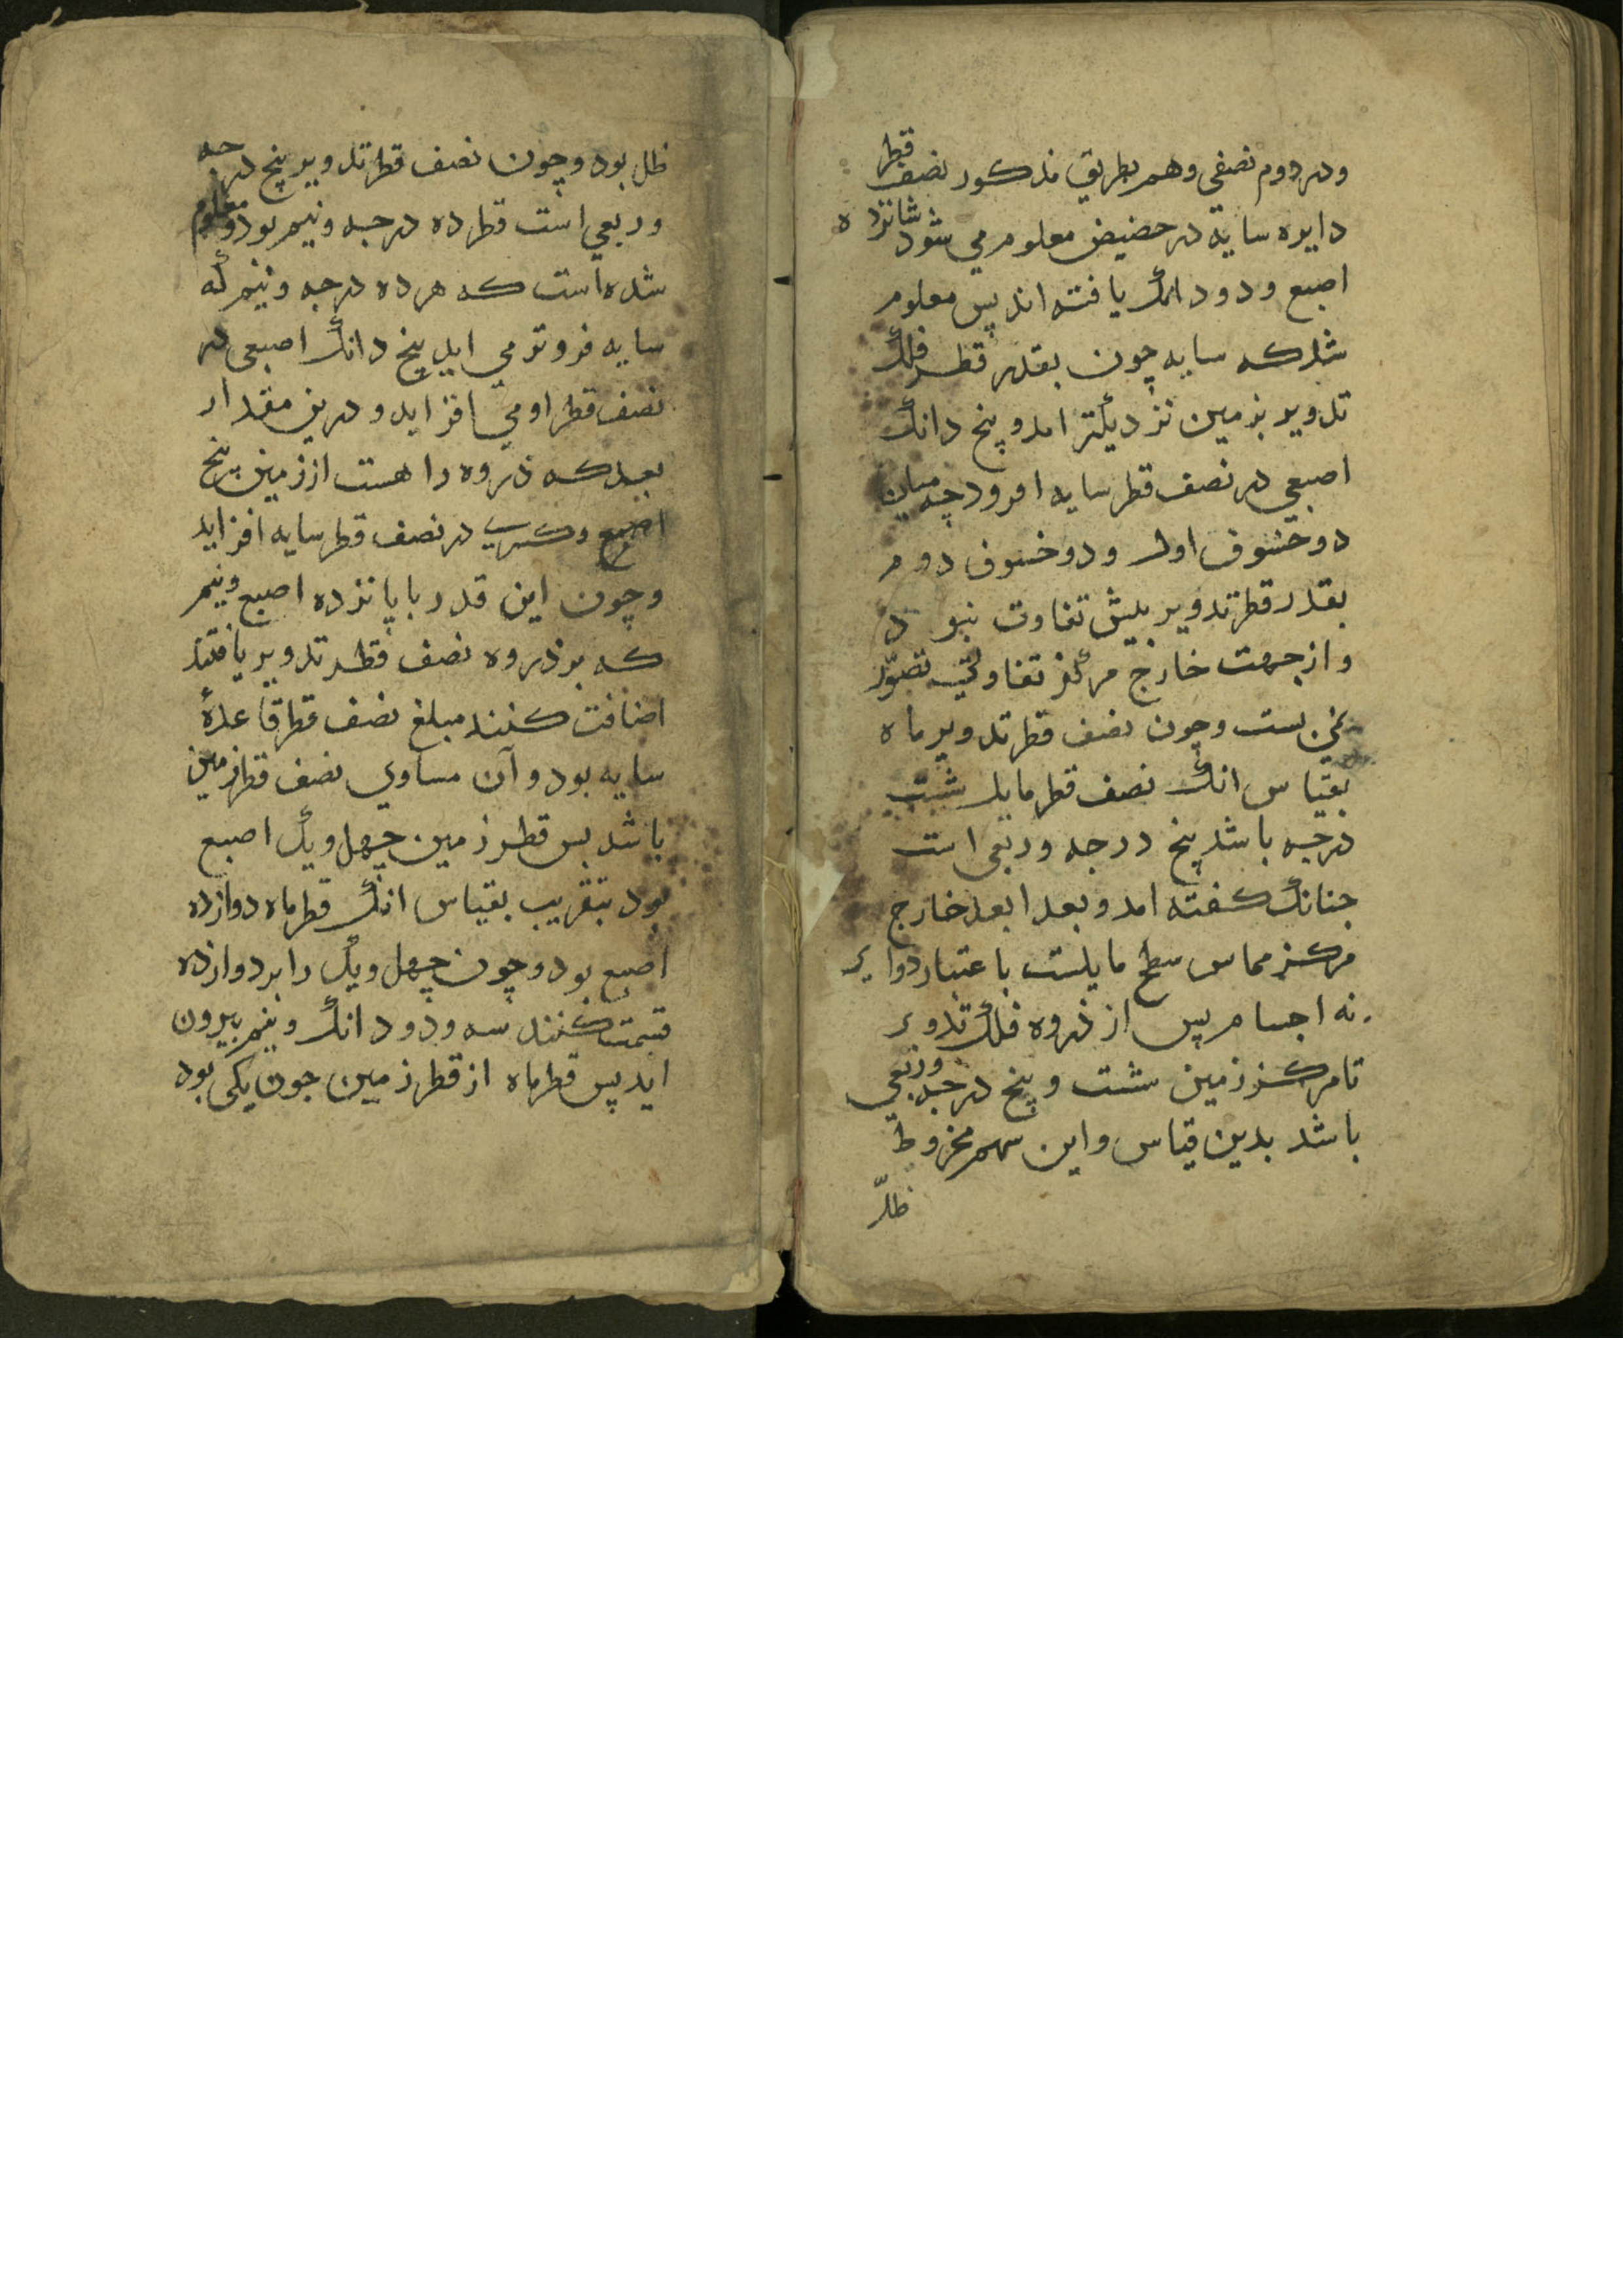 ودر دوم نصفی وهم بطریق مذکور نصف قطر
دایره سایه در حضیض معلوم می شود شانزده
اصبع ودو دانک یافته اند پس معلوم
شد که سایه چون بقدر قطر فلک
تدویر بزمین نزدیکتر امد و پنج دانک
اصبعی در نصف قطر سایه افزود چه میان
دو خسوف اول ودو خسوف دوم
بقدر قطر تدویر بیش تفاوت نبود
واز جهت خارج مرکز تفاوتی تصور
نمی بست وچون نصف قطر تدویر ماه
بقیاس انک نصف قطر مایل شست
درجه باشد پنج درجه وربعی است
جنانک کفته امد وبعد ابعد خارج
مرکز مماس سطح مایلست باعتبار دوایر
نه اجسام پس از ذروه فلک تدویر
تا مرکز زمین شست و پنج درجه وربعی
باشد بدین قیاس واین سهم مخروط
ظل
ظل بود وچون نصف قطر تدویر پنج درجه
وربعی است قطر ده درجه ونیم بود ومعلوم
شده است که هر ده درجه ونیم که
سایه فروتر می اید پنج دانک اصبعی در
نصف قطر او می افزاید ودرین مقدار
بعد که ذروه را هست از زمین پنج
اصبع وکسری در نصف قطر سایه افزاید
وچون این قدر با پانزده اصبع ونیم
که بر ذروه نصف قطر تدویر یافتند
اضافت کنند مبلغ نصف قطر قاعدهٔ
سایه بود و آن مساوی نصف قطر زمین
باشد بس قطر زمین چهل ویک اصبع
بود بتقریب بقیاس انک قطر ماه دوازده
اصبع بود وچون چهل ویک را بر دوازده
قسمت کنند سه ودو دانک ونیم بیرون
اید پس قطر ماه از قطر زمین جون یکی بود